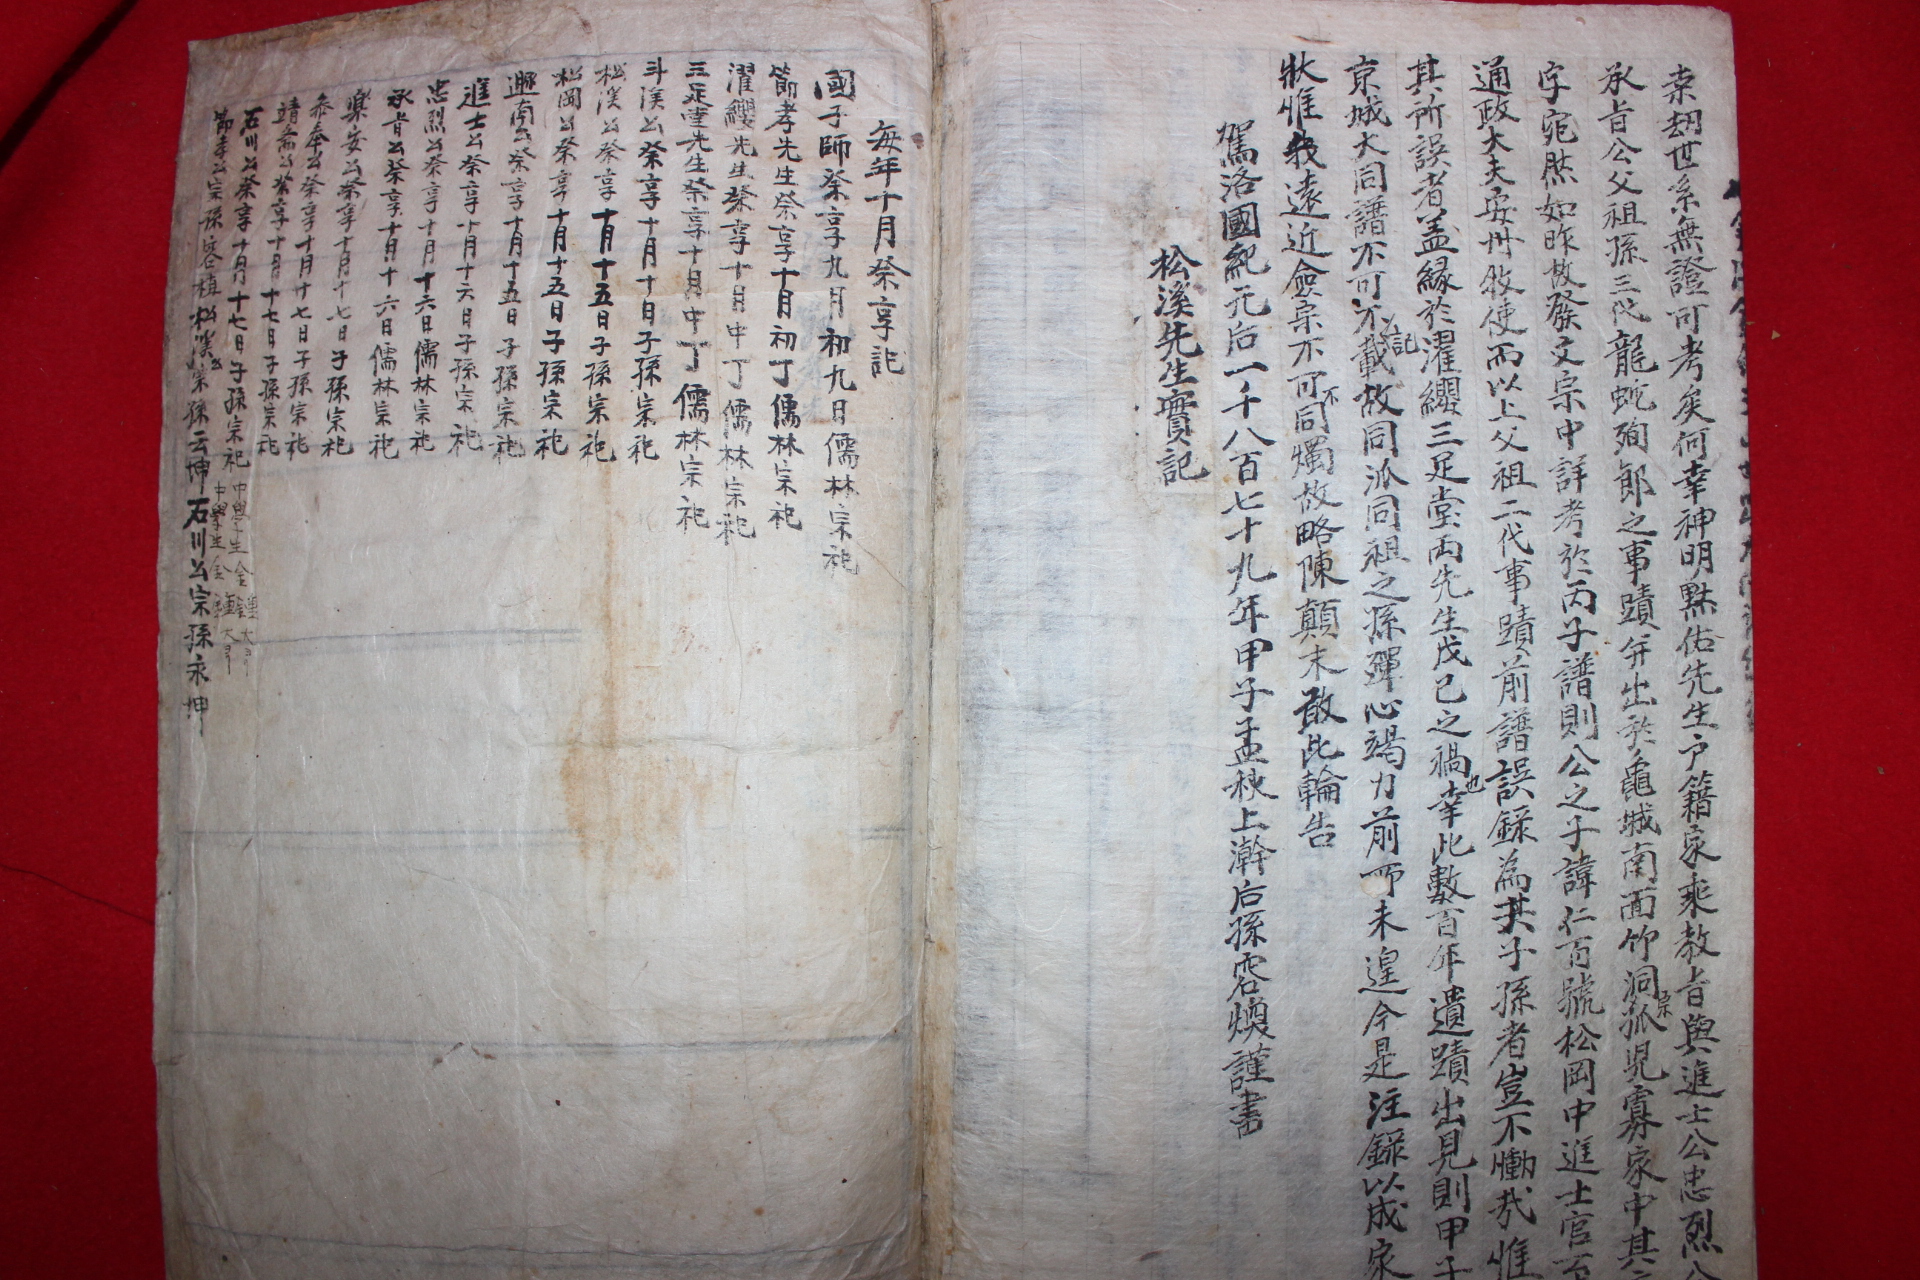 宗刼世系無證可考矣何幸神明黙佑先生戶籍家乘教旨與進士公忠烈公
承旨公父祖孫三代龍蛇殉節之事蹟并出於龜城南面竹洞宗孤児寡家中其
字宛然如昨故發文宗中詳考於丙子譜則公之子諱仁百號松岡中進士官至
通政大夫安州牧使而以上父祖二代事蹟前譜誤録為其子孫者豈不慟㦲惟
其所誤者盖緣於濯纓三足堂兩先生戊己之禍也幸此數百年遺蹟出見則甲子
京城大同譜不可不記載故同派同祖之孫殫心竭力前而未遑今是注録以成家
狀惟我遠近僉宗不可不同燭故略陳顛末敢此輪告
駕洛國紀元后一千八百七十九年甲子孟秋上澣后孫容煥謹書
松溪先生實記
每年十月祭享記
國子師祭享九月初九日儒林宗祀
節孝先生祭享十月初丁儒林宗祀
濯纓先生祭享十月中丁儒林宗祀
三足堂先生祭享十月中丁儒林宗祀
斗溪公祭享十月十日子孫宗祀
松溪公祭享十月十五日子孫宗祀
松岡公祭享十月十五日子孫宗祀
興南公祭享十月十五日子孫宗祀
進士公祭享十月十六日子孫宗祀
忠烈公祭享十月十六日儒林宗祀
承旨公祭享十月十六日儒林宗祀
樂安公祭享十月十七日子孫宗祀
叅奉公祭享十月十七日子孫宗祀
靖斋公祭享十月十七日子孫宗祀
石川公祭享十月十七日子孫宗祀
節孝公宗孫容植松溪公宗孫云坤石川公宗孫永坤